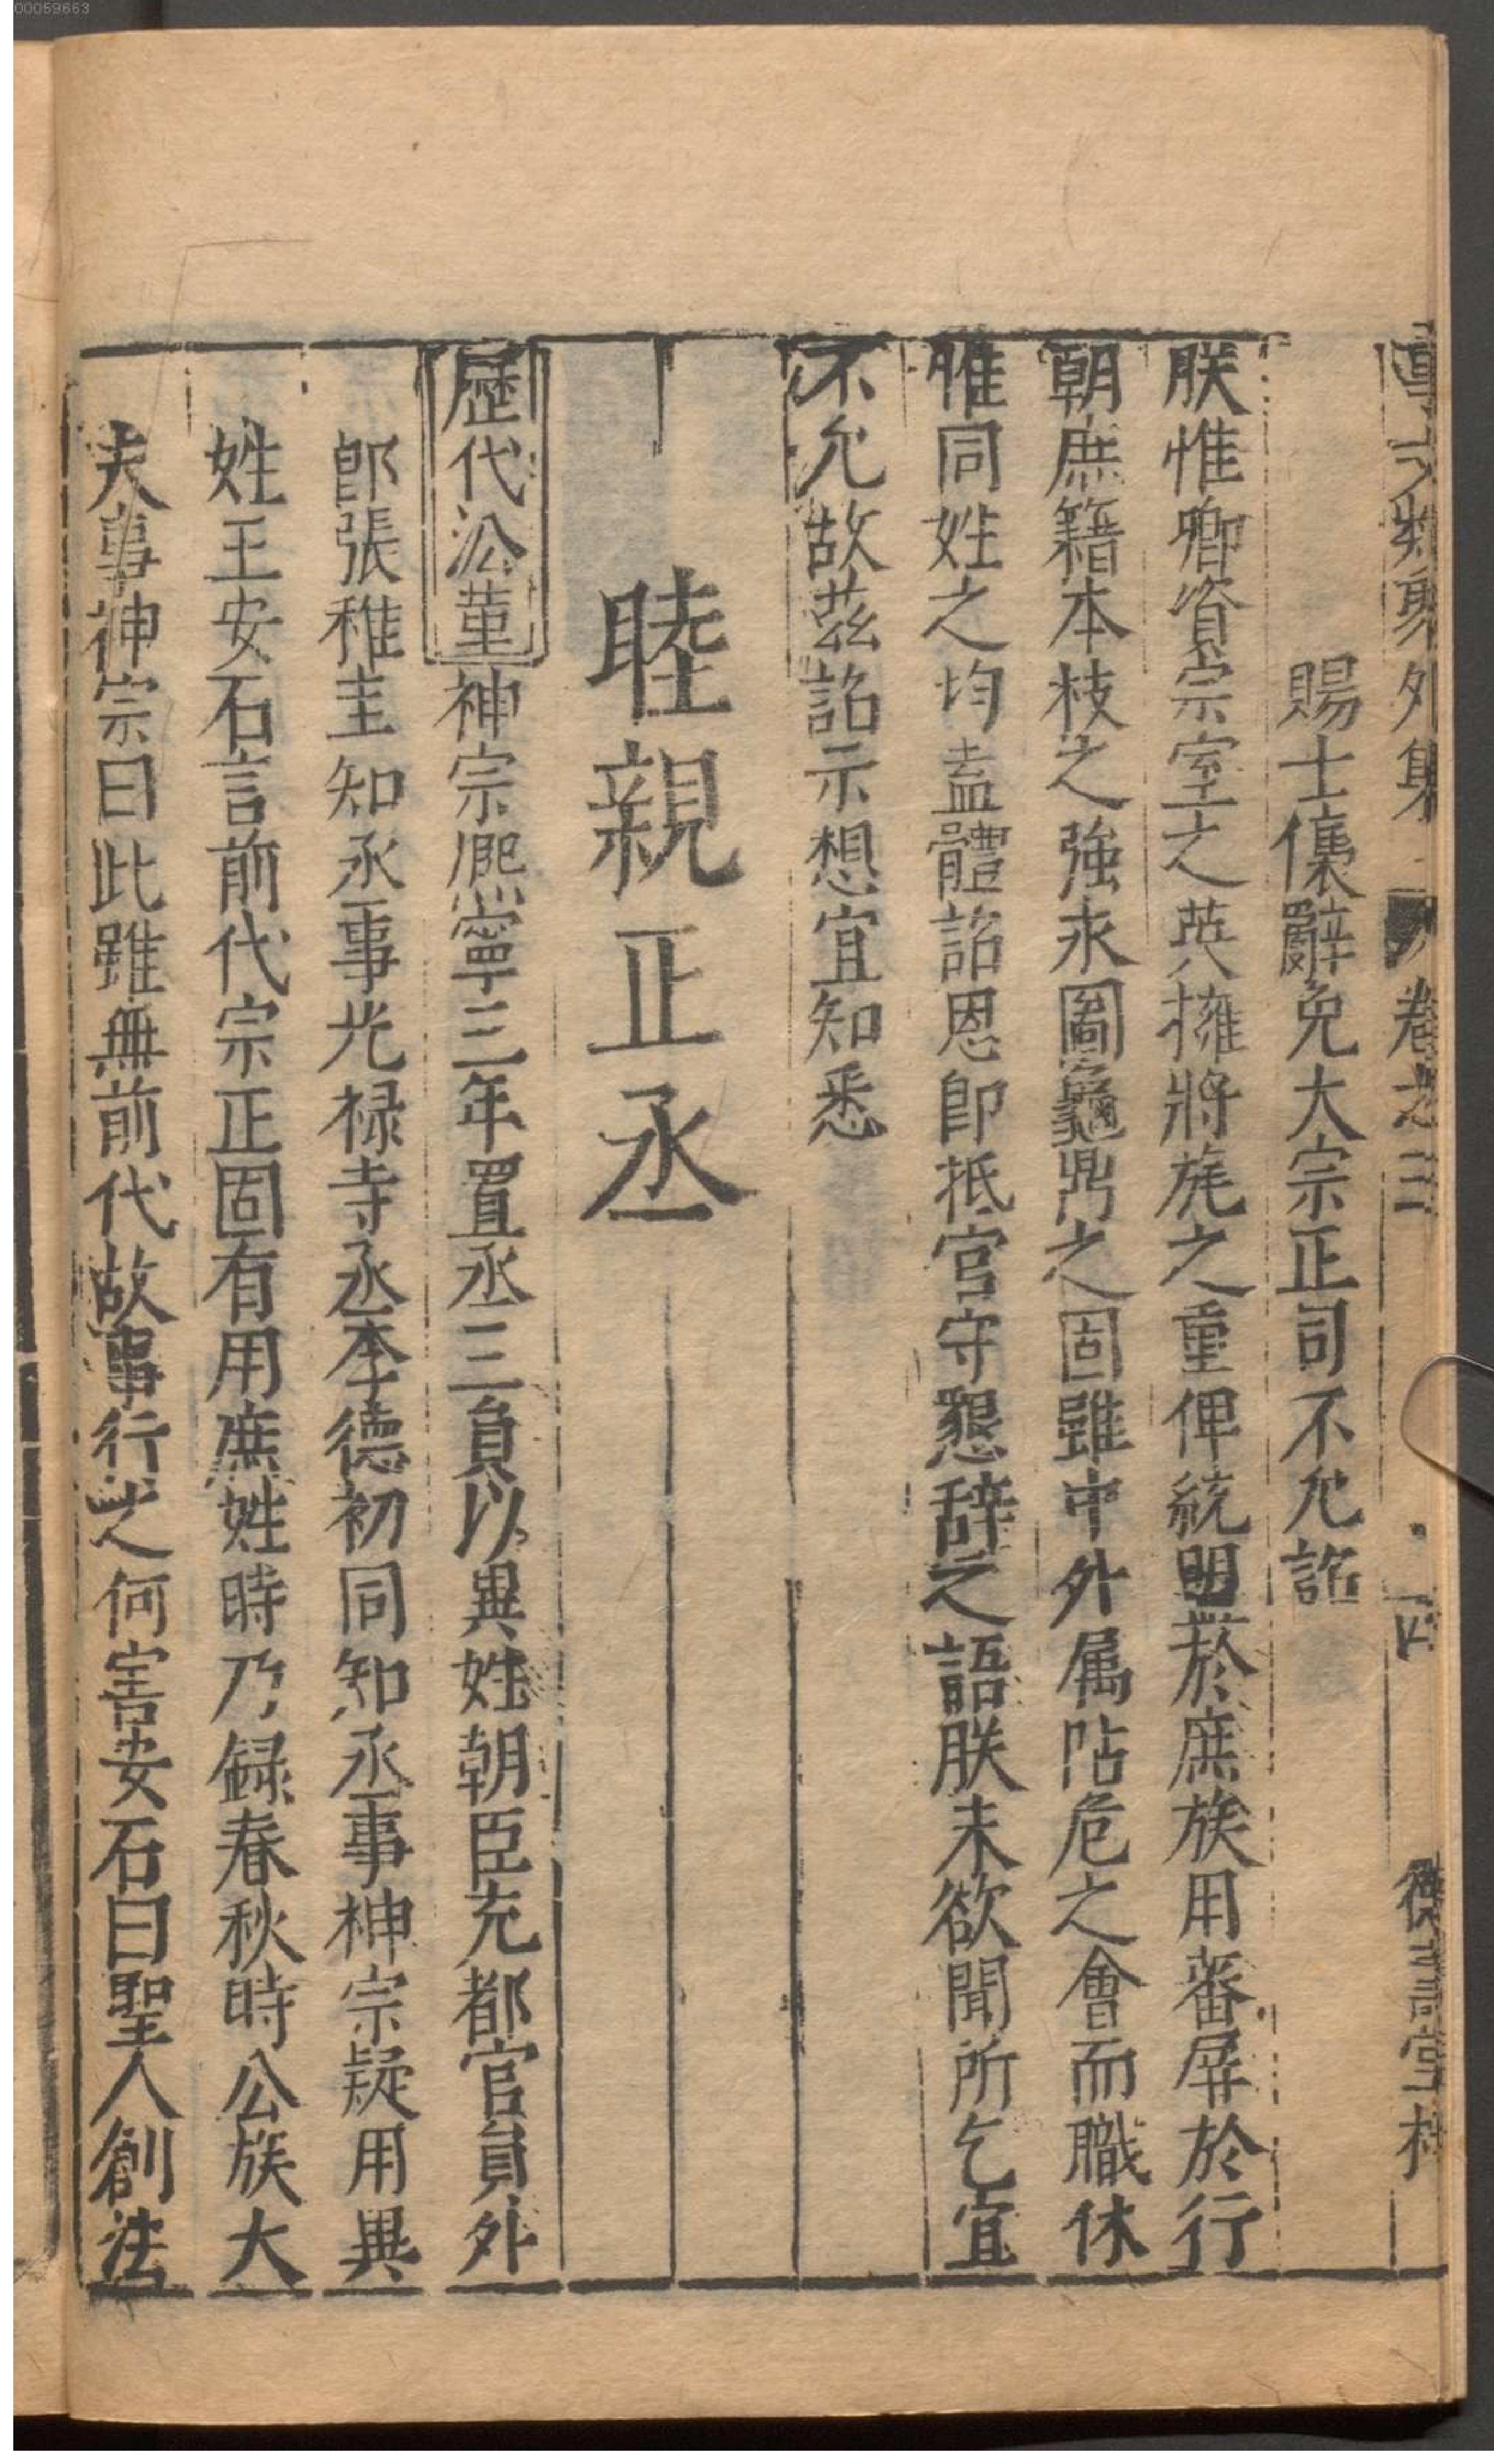 00059663
事文類聚外集 卷之三 四 德壽堂梓
賜士㒟辭免大宗正司不允詔
朕惟卿資宗室之英擁將旄之重俾統盟於庶族用蕃屏於行
朝庶籍本枝之強永圖龜鼎之固雖中外属阽危之會而職休
惟同姓之均盍體詔恩即抵官守懇辞之語朕未欲聞所乞宜
不允故茲詔示想宜知悉
睦親正丞
歷代沿革神宗熈寧三年置丞二員以異姓朝臣充都官員外
郎張稚圭知丞事光禄寺丞李德初同知丞事神宗疑用異
姓王安石言前代宗正固有用庶姓時乃録春秋時公族大
夫事神宗曰此雖無前代故事行之何害安石曰聖人創法